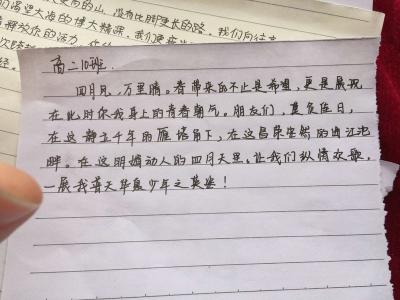 们渴望大海的博大精深，我们更痴
高二10班.
四月风，万里晴。春带来的不止是希望，更是展现
在此时你我身上的青春朝气。朋友们，莫负佳日，
在这静立千年的雁塔下，在这昌荣安然的曲江池
畔。在这明媚动人的四月天里，让我们纵情欢歌，
一展我普天华夏少年之英姿！